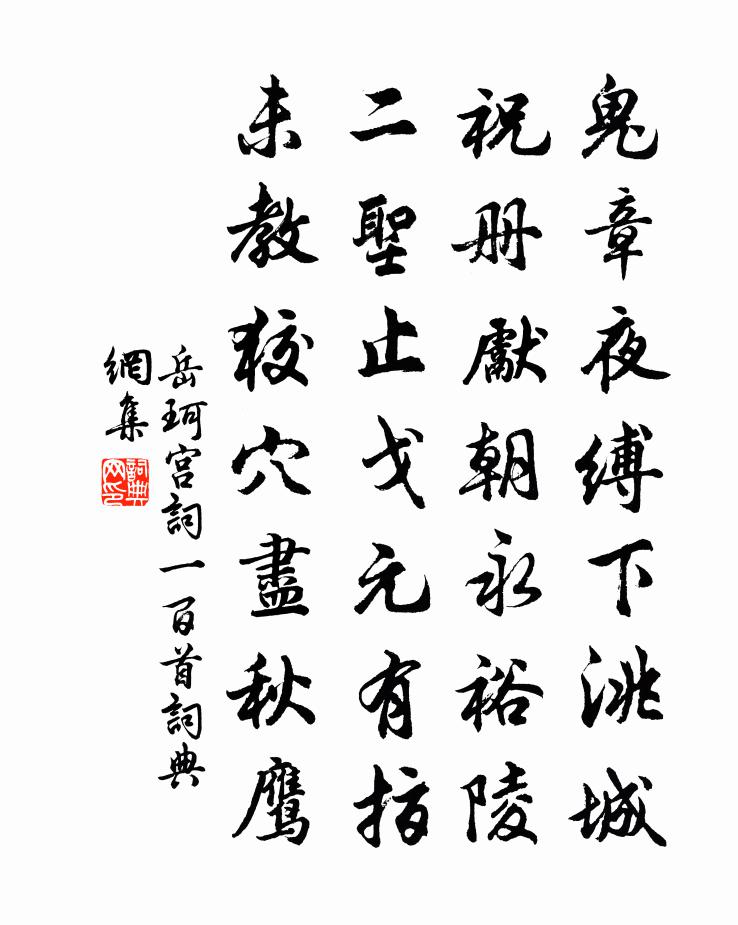 鬼章夜縛下洮城
祝册獻朝永裕陵
二聖止戈元有指
未教狡穴盡秋鷹
岳珂宫詞一百首詞典
網集
詞典
网印